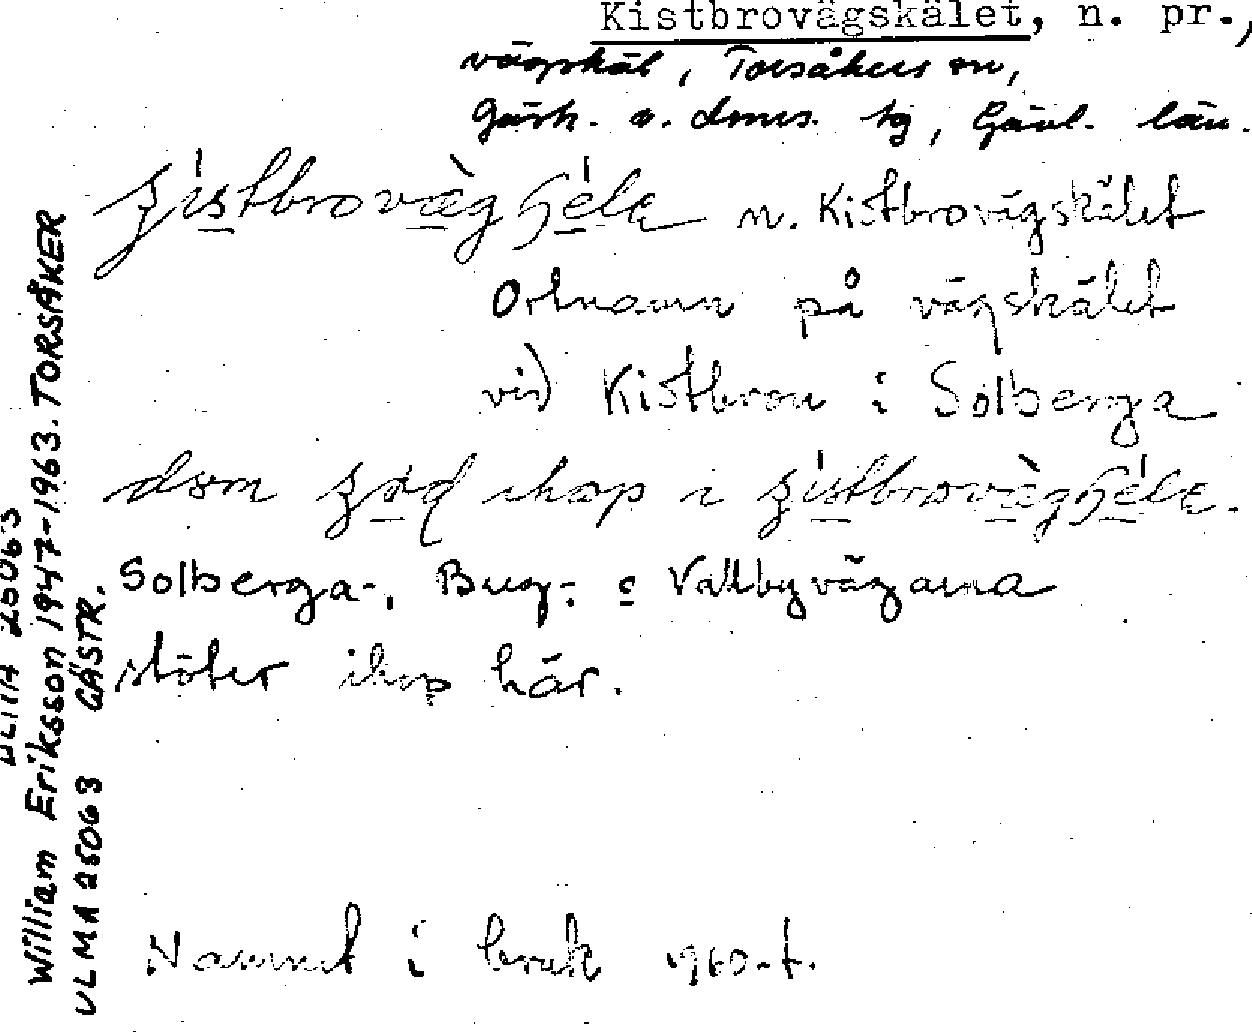 Kistbrovägskälet, n. pr.,
vägskäl, Torsåkers sn,
Gästr. ö. dms. tg, Gävl. län.
n. Kistbrovägskälet
Ortnamn på vägskälet
vid Kistbron i Solberga
dom ihop i
Solberga-, Bug- o Vallbyvägarna
stöter ihop här.
Namnet i bruk 1960-t.
ULMA 25063
William Eriksson 1947-1963. TORSÅKER
ULMA 25063 GÄSTR.